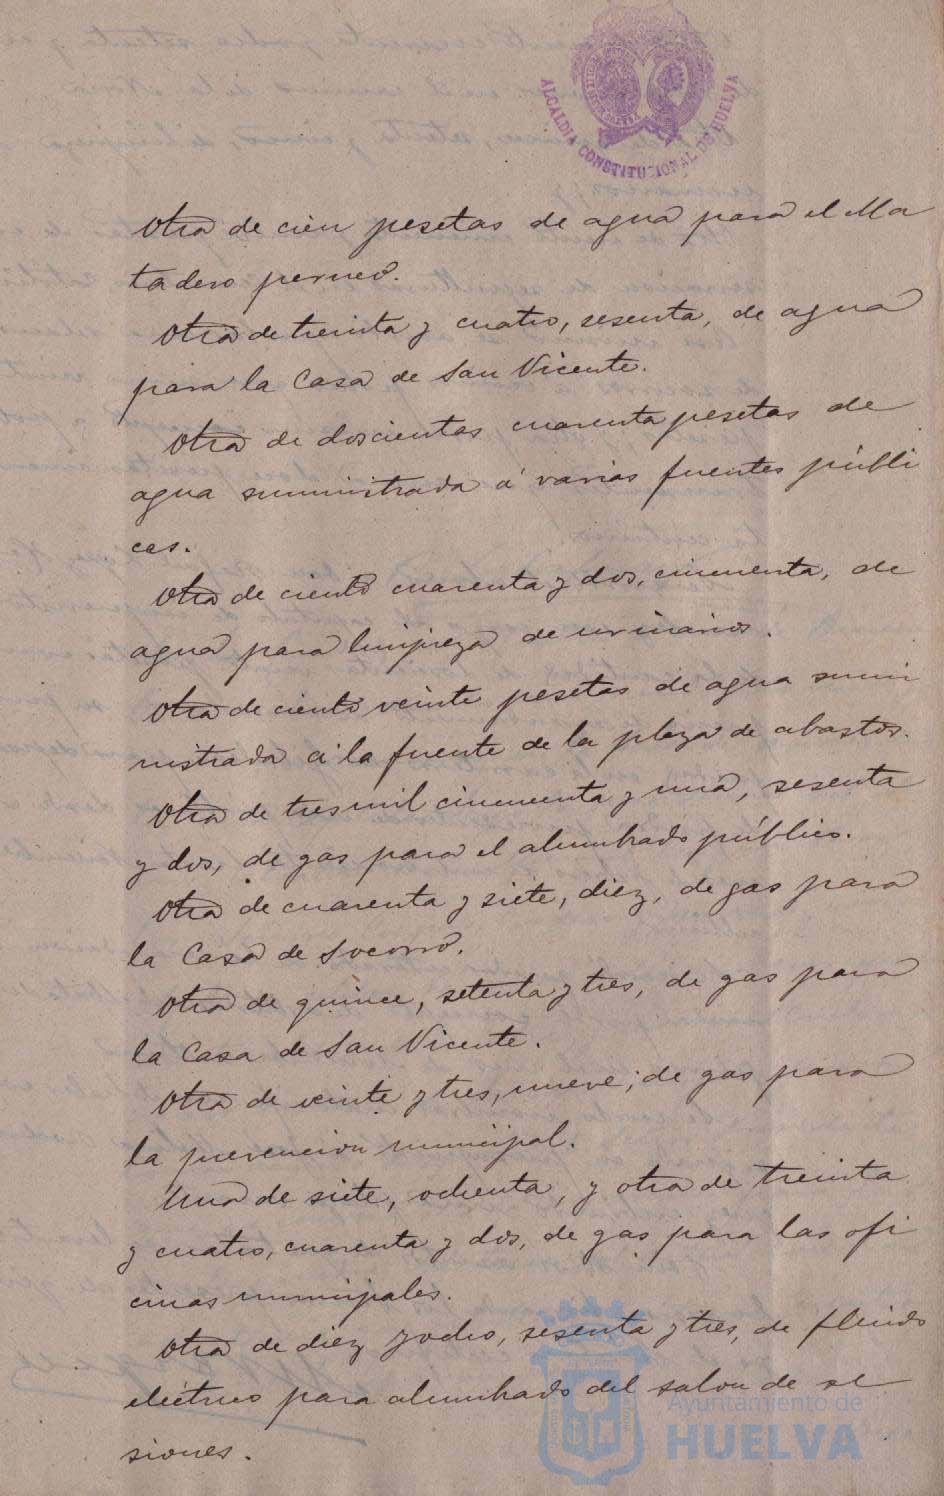 ALCALDIA CONSTITUCIONAL DE HUELVA
Otra de cien pesetas de agua para el Ma
tadero perneo.
Otra de treinta y cuatro, sesenta, de agua
para la Casa de San Vicente.
Otra de doscientas cuarenta pesetas de
agua suministrada á varias fuentes públi
cas.
Otra de ciento cuarenta y dos, cincuenta, de
agua para limpieza de urinarios.
Otra de ciento veinte pesetas de agua sumi
nistrada á la fuente de la plaza de abastos.
Otra de tres mil cincuenta y una, sesenta
y dos, de gas para el alumbrado público.
Otra de cuarenta y siete, diez, de gas para
la Casa de Socorro.
Otra de quince, setenta y tres, de gas para
la Casa de San Vicente.
Otra de veinte y tres, nueve; de gas para
la prevencion municipal.
Una de siete, ochenta, y otra de treinta
y cuatro, cuarenta y dos, de gas para las ofi
cinas municipales.
Otra de diez y ocho, sesenta y tres, de fluido
eléctrico para alumbrado del salon de se
siones.
Ayuntamiento de
HUELVA